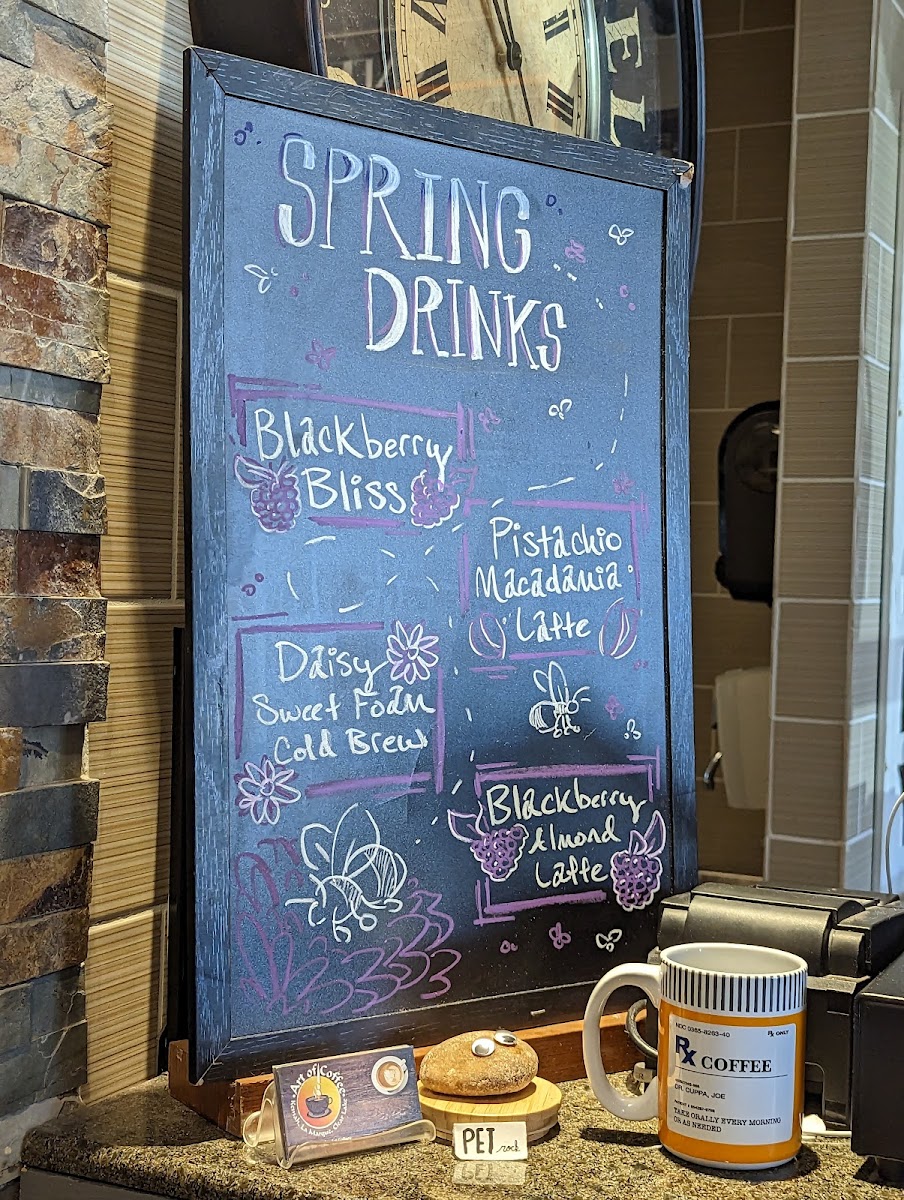 SPRING
DRINKS
Blackberry
Bliss
Pistachio
Macadamia
Latte
Daisy
Sweet Foam
Cold Brew
Blackberry
Almond
Latte
Art of Coffee
PET rock
NDC 0365-8263-40
Rx ONLY
Rx COFFEE
DR. CUPPA, JOE
TAKE ORALLY EVERY MORNING
OR AS NEEDED